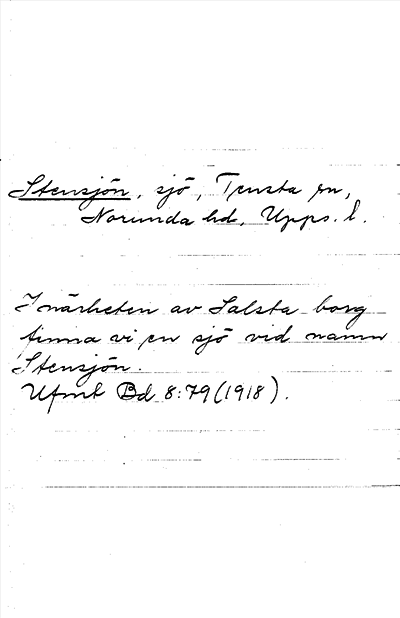 Stensjön, sjö, Tensta sn,
Norunda hd, Upps. l.
I närheten av Salsta borg
finna vi en sjö vid namn
Stensjön.
Ufmt Bd 8:79 (1918).